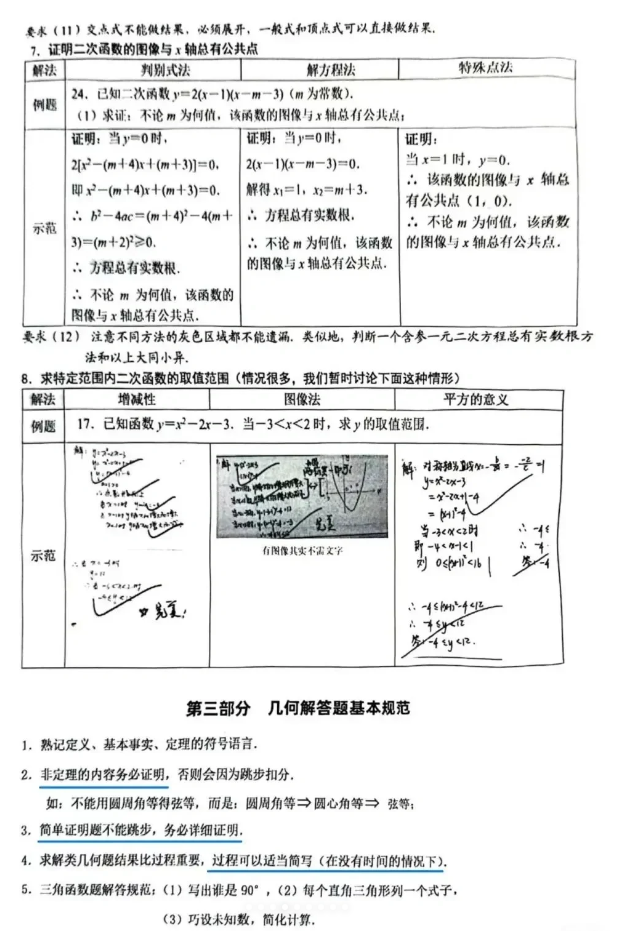 要求（11）交点式不能做结果，必须展开，一般式和顶点式可以直接做结果.
7．证明二次函数的图像与 x 轴总有公共点
解法 判别式法 解方程法 特殊点法
例题 24．已知二次函数 y=2(x−1)(x−m−3)（m 为常数）.
（1）求证：不论 m 为何值，该函数的图像与 x 轴总有公共点；
示范
证明：当 y=0 时，
2[x²−(m+4)x+(m+3)]=0，
即 x²−(m+4)x+(m+3)=0.
∴ b²−4ac=(m+4)²−4(m+
3)=(m+2)²≥0.
∴ 方程总有实数根.
∴ 不论 m 为何值，该函数的
图像与 x 轴总有公共点.
证明：当 y=0 时，
2(x−1)(x−m−3)=0.
解得 x₁=1，x₂=m+3.
∴ 方程总有实数根，
∴ 不论 m 为何值，该函数
的图像与 x 轴总有公共点.
证明：
当 x=1 时，y=0.
∴ 该函数的图像与 x 轴总
有公共点（1，0）.
∴ 不论 m 为何值，该函数
的图像与 x 轴总有公共点.
要求（12） 注意不同方法的灰色区域都不能遗漏. 类似地，判断一个含参一元二次方程总有实数根方
法和以上大同小异.
8．求特定范围内二次函数的取值范围（情况很多，我们暂时讨论下面这种情形）
解法 增减性 图像法 平方的意义
例题 17．已知函数 y=x²−2x−3．当−3<x<2 时，求 y 的取值范围.
示范
完美!
完美
有图像其实不需文字
解：对称轴为直线
y=x²-2x-3
=x²-2x+1-4
=(x-1)²-4
当-3<x<2时
即-4<x-1<1
则 0≤(x-1)²<16
∴ -4≤
∴ -4
∴ -4≤(x-1)²-4<12
∴ -4≤y<12
答：-4≤y<12.
第三部分 几何解答题基本规范
1．熟记定义、基本事实、定理的符号语言.
2．非定理的内容务必证明，否则会因为跳步扣分.
如：不能用圆周角等得弦等，而是：圆周角等⇒圆心角等⇒ 弦等；
3．简单证明题不能跳步，务必详细证明.
4．求解类几何题结果比过程重要，过程可以适当简写（在没有时间的情况下）.
5．三角函数题解答规范：（1）写出谁是 90°，（2）每个直角三角形列一个式子，
（3）巧设未知数，简化计算.